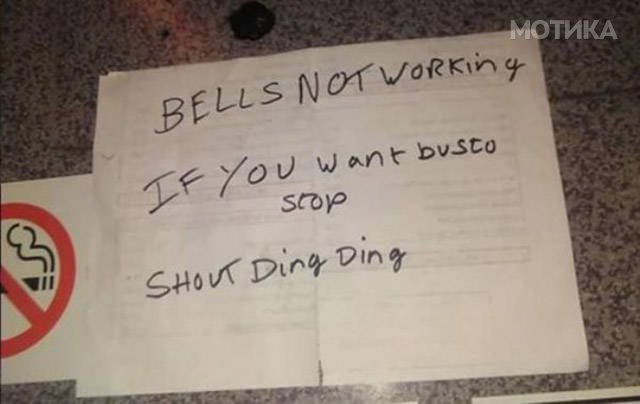 МОТИКА
BELLS NOT WORKing
IF YOU want bus to
stop
SHOUT Ding Ding